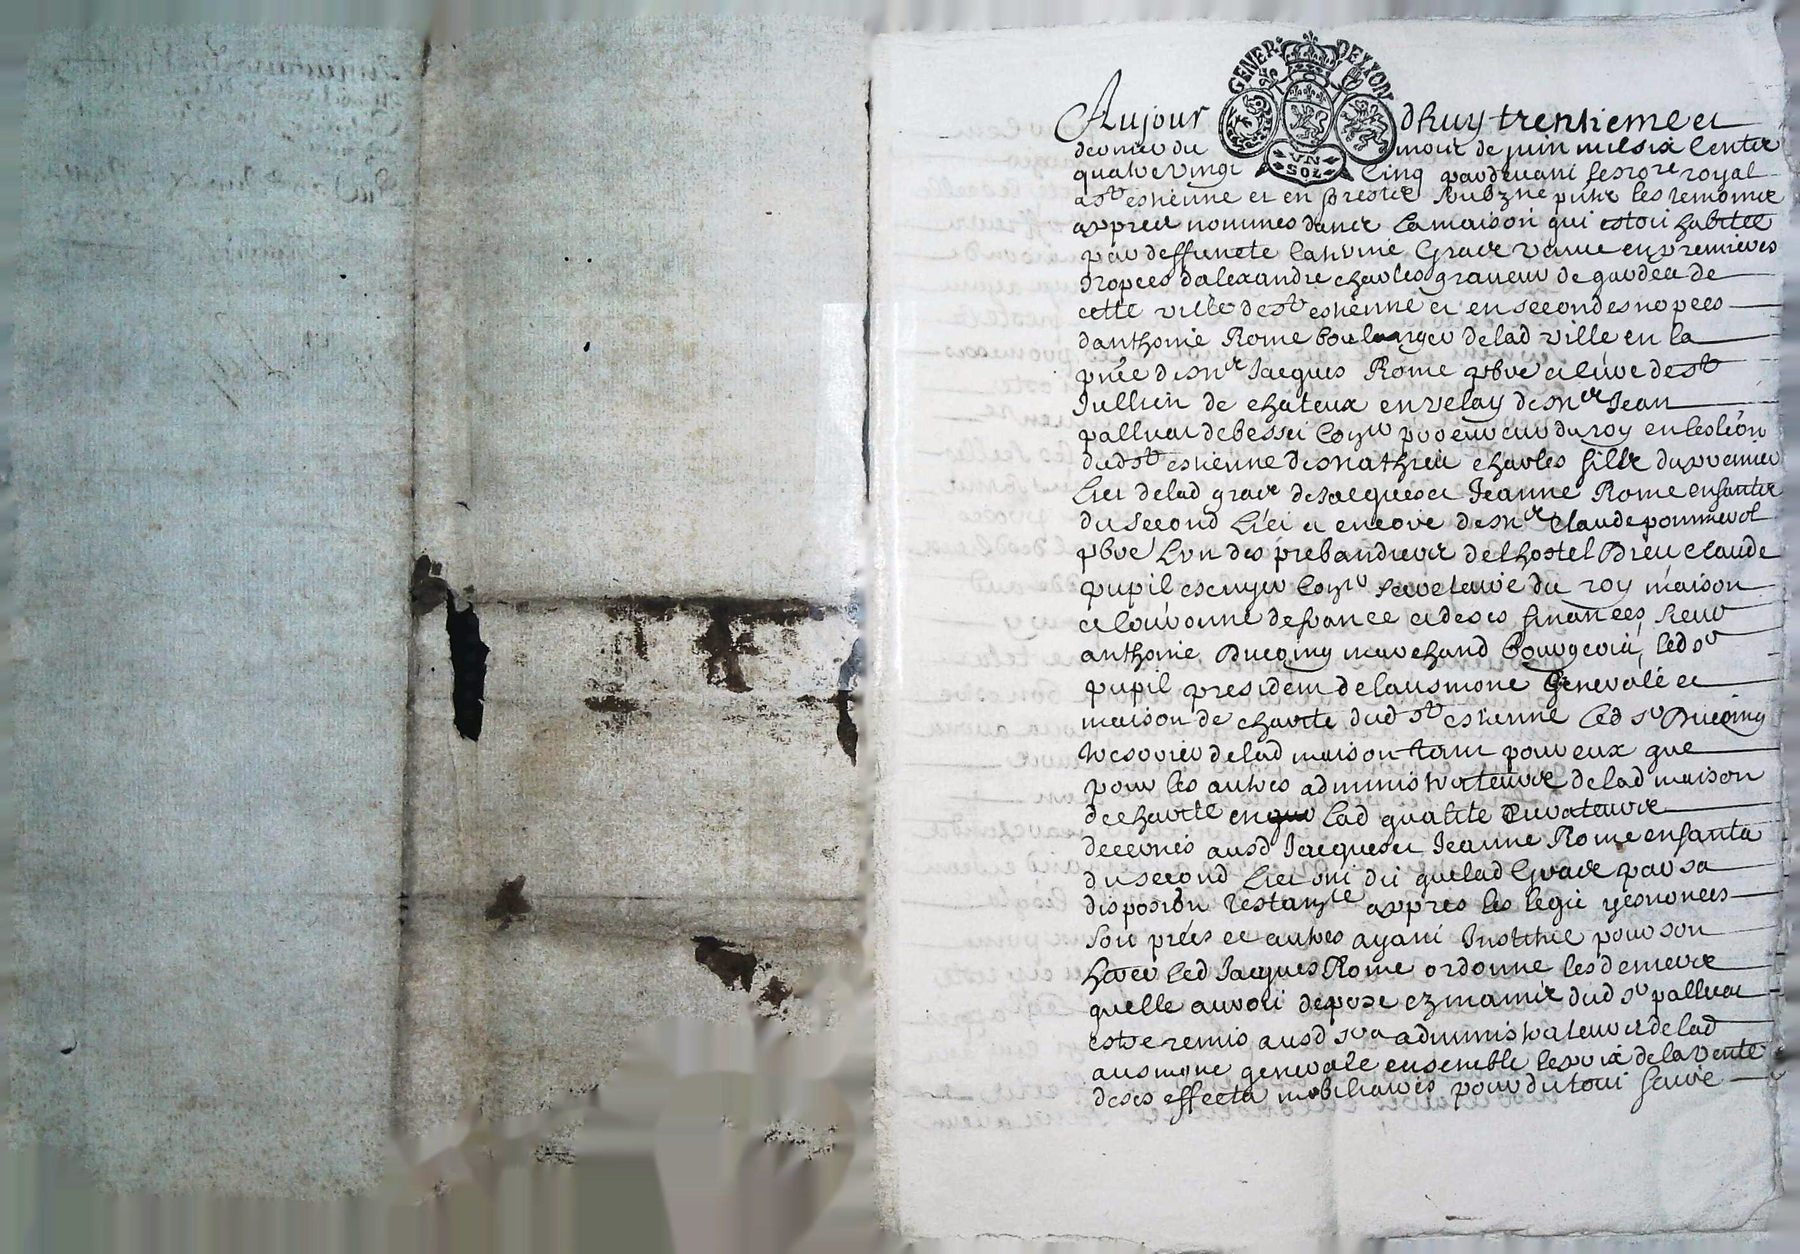 GENER. DE LYON
UN SOL
Aujour dhuy trentieme et
dernier du mois de juin mil six centz
quatre vingt cinq pardevant les nore royal
a st estienne et en forestz soubzne puis les temoins
appres nommes dans la maison qui estoit habitee
par deffuncte Grace veuve en premieres
nopces dalexandre charles graveur de gardes de
cette ville de st estienne et en secondes nopces
danthoine Rome boulanger de lad ville en la
pnce de mre Jacques Rome pbre et cure de st
Jullien de chateux en velay de mre Jean
palluat de besset coner procureur du roy en leslion
dud st estienne de mathieu charles fille du premier
lict de lad grace de Jacques et Jeanne Rome enfantz
du second lict et encore de mre Claude pommerol
pbre lun des prebandiers de lhostel Dieu claude
pupil escuyer coner secretaire du roy maison
et couronne de france et de ses finances sieur
anthoine Ducoing marchand bourgeois, led sr
pupil president de lausmone generale et
maison de charite dud st estienne led sr Ducoing
tresorier de lad maison tant pour eux que
pour les autres administrateurs de lad maison
de charite en lad qualite curateurs
decernes ausd Jacques et Jeanne Rome enfants
du second lict ont dit que lad Grace par sa
disposion testamre appres les legis y enonces
soit prets et autres ayant Institue pour son
hever led Jacques Rome ordonne les deniers
quelle avoit depose ez mains dud sr palluat
estre remis ausd srs administrateurs de lad
ausmone generale ensemble le prix de la vente
de ses effects mobiliaires pour du tout faire